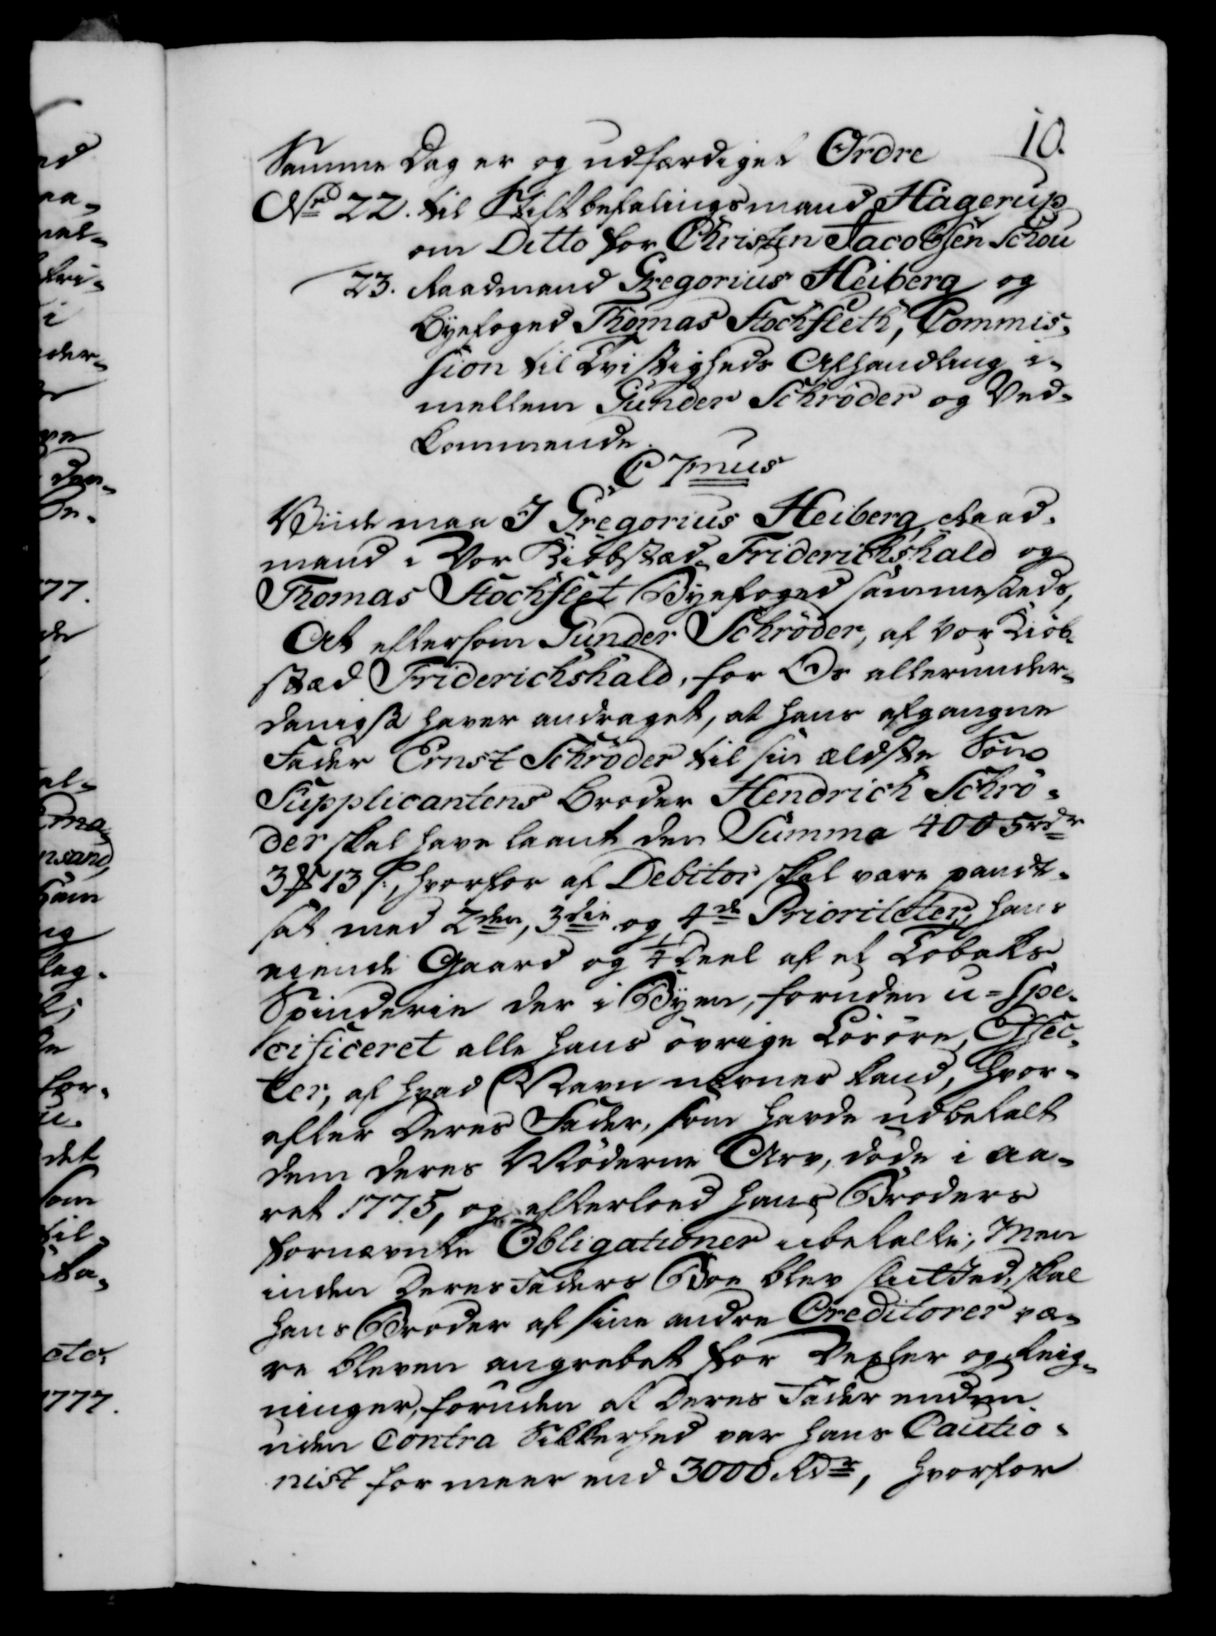 10.
Samme Dag er og udfærdiget Ordre
No 22. til Stiftbefalingsmand Hagerup
om Ditto for Christen Jacobsen Schou
23. Raadmand Gregorius Heiberg og
Byefoged Thomas Stochfleth, Commis-
sion til Tvistigheds Afhandling i-
mellem Gunder Schrøder og Ved-
kommende.
C 7mus
Viide maa I Gregorius Heiberg, Raad-
mand i Vor Kiøbstæd Friderichshald og
Thomas Stochflet Byefoged sammesteds,
At eftersom Gunder Schrøder, af vor Kiøb-
stæd Friderichshald, for Os allerunder-
danigst haver andraget, at hans afgangne
Fader Ernst Schrøder til sin ældste Søn
Supplicantens Broder Hendrich Schrø-
der skal have laant den Summa 4005 rdr
3 ₰ 13 s:, hvorfor af Debitor skal være pandt-
sat med 2den, 3die og 4de Prioriteter, hans
eiende Gaard og 1/4 Deel af et Tobaks
Spinderie der i Byen, foruden u-spe-
cificeret alle hans øvrige Løsøre, Effec-
ter, af hvad Navn nævnes kand, hvor-
efter deres Fader, som havde udbetalt
dem deres Møderne Arv, døde i Aa-
ret 1775, og efterloed hans Broders
fornævnte Obligationer ubetalte; Men
inden deres Faders Boe blev slutted, skal
hans Broder af sine andre Creditorer væ-
re bleven angrebet for Vexler og Reig-
ninger, foruden at deres Fader endnu
uden Contra Sikkerhed var hans Cautio-
nist for meer end 3000 Rdr, hvorfor